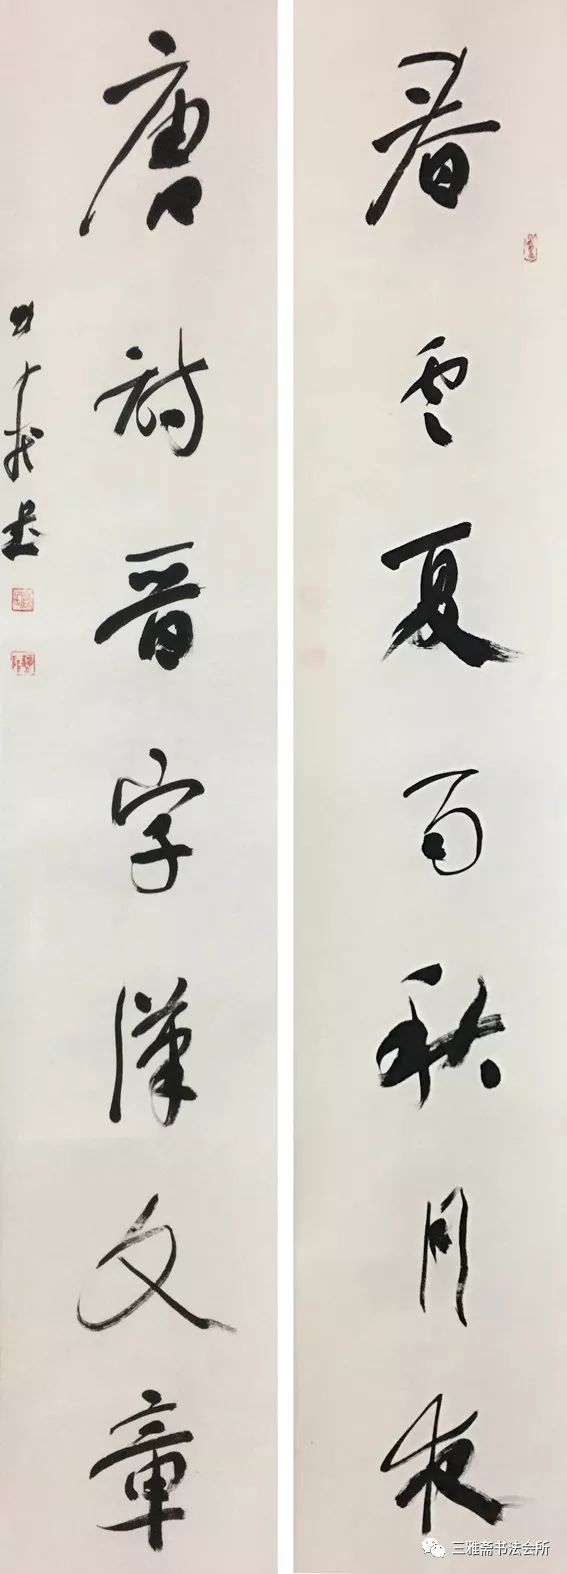 春云夏雨秋月夜
唐诗晋字汉文章
三雅斋书法会所